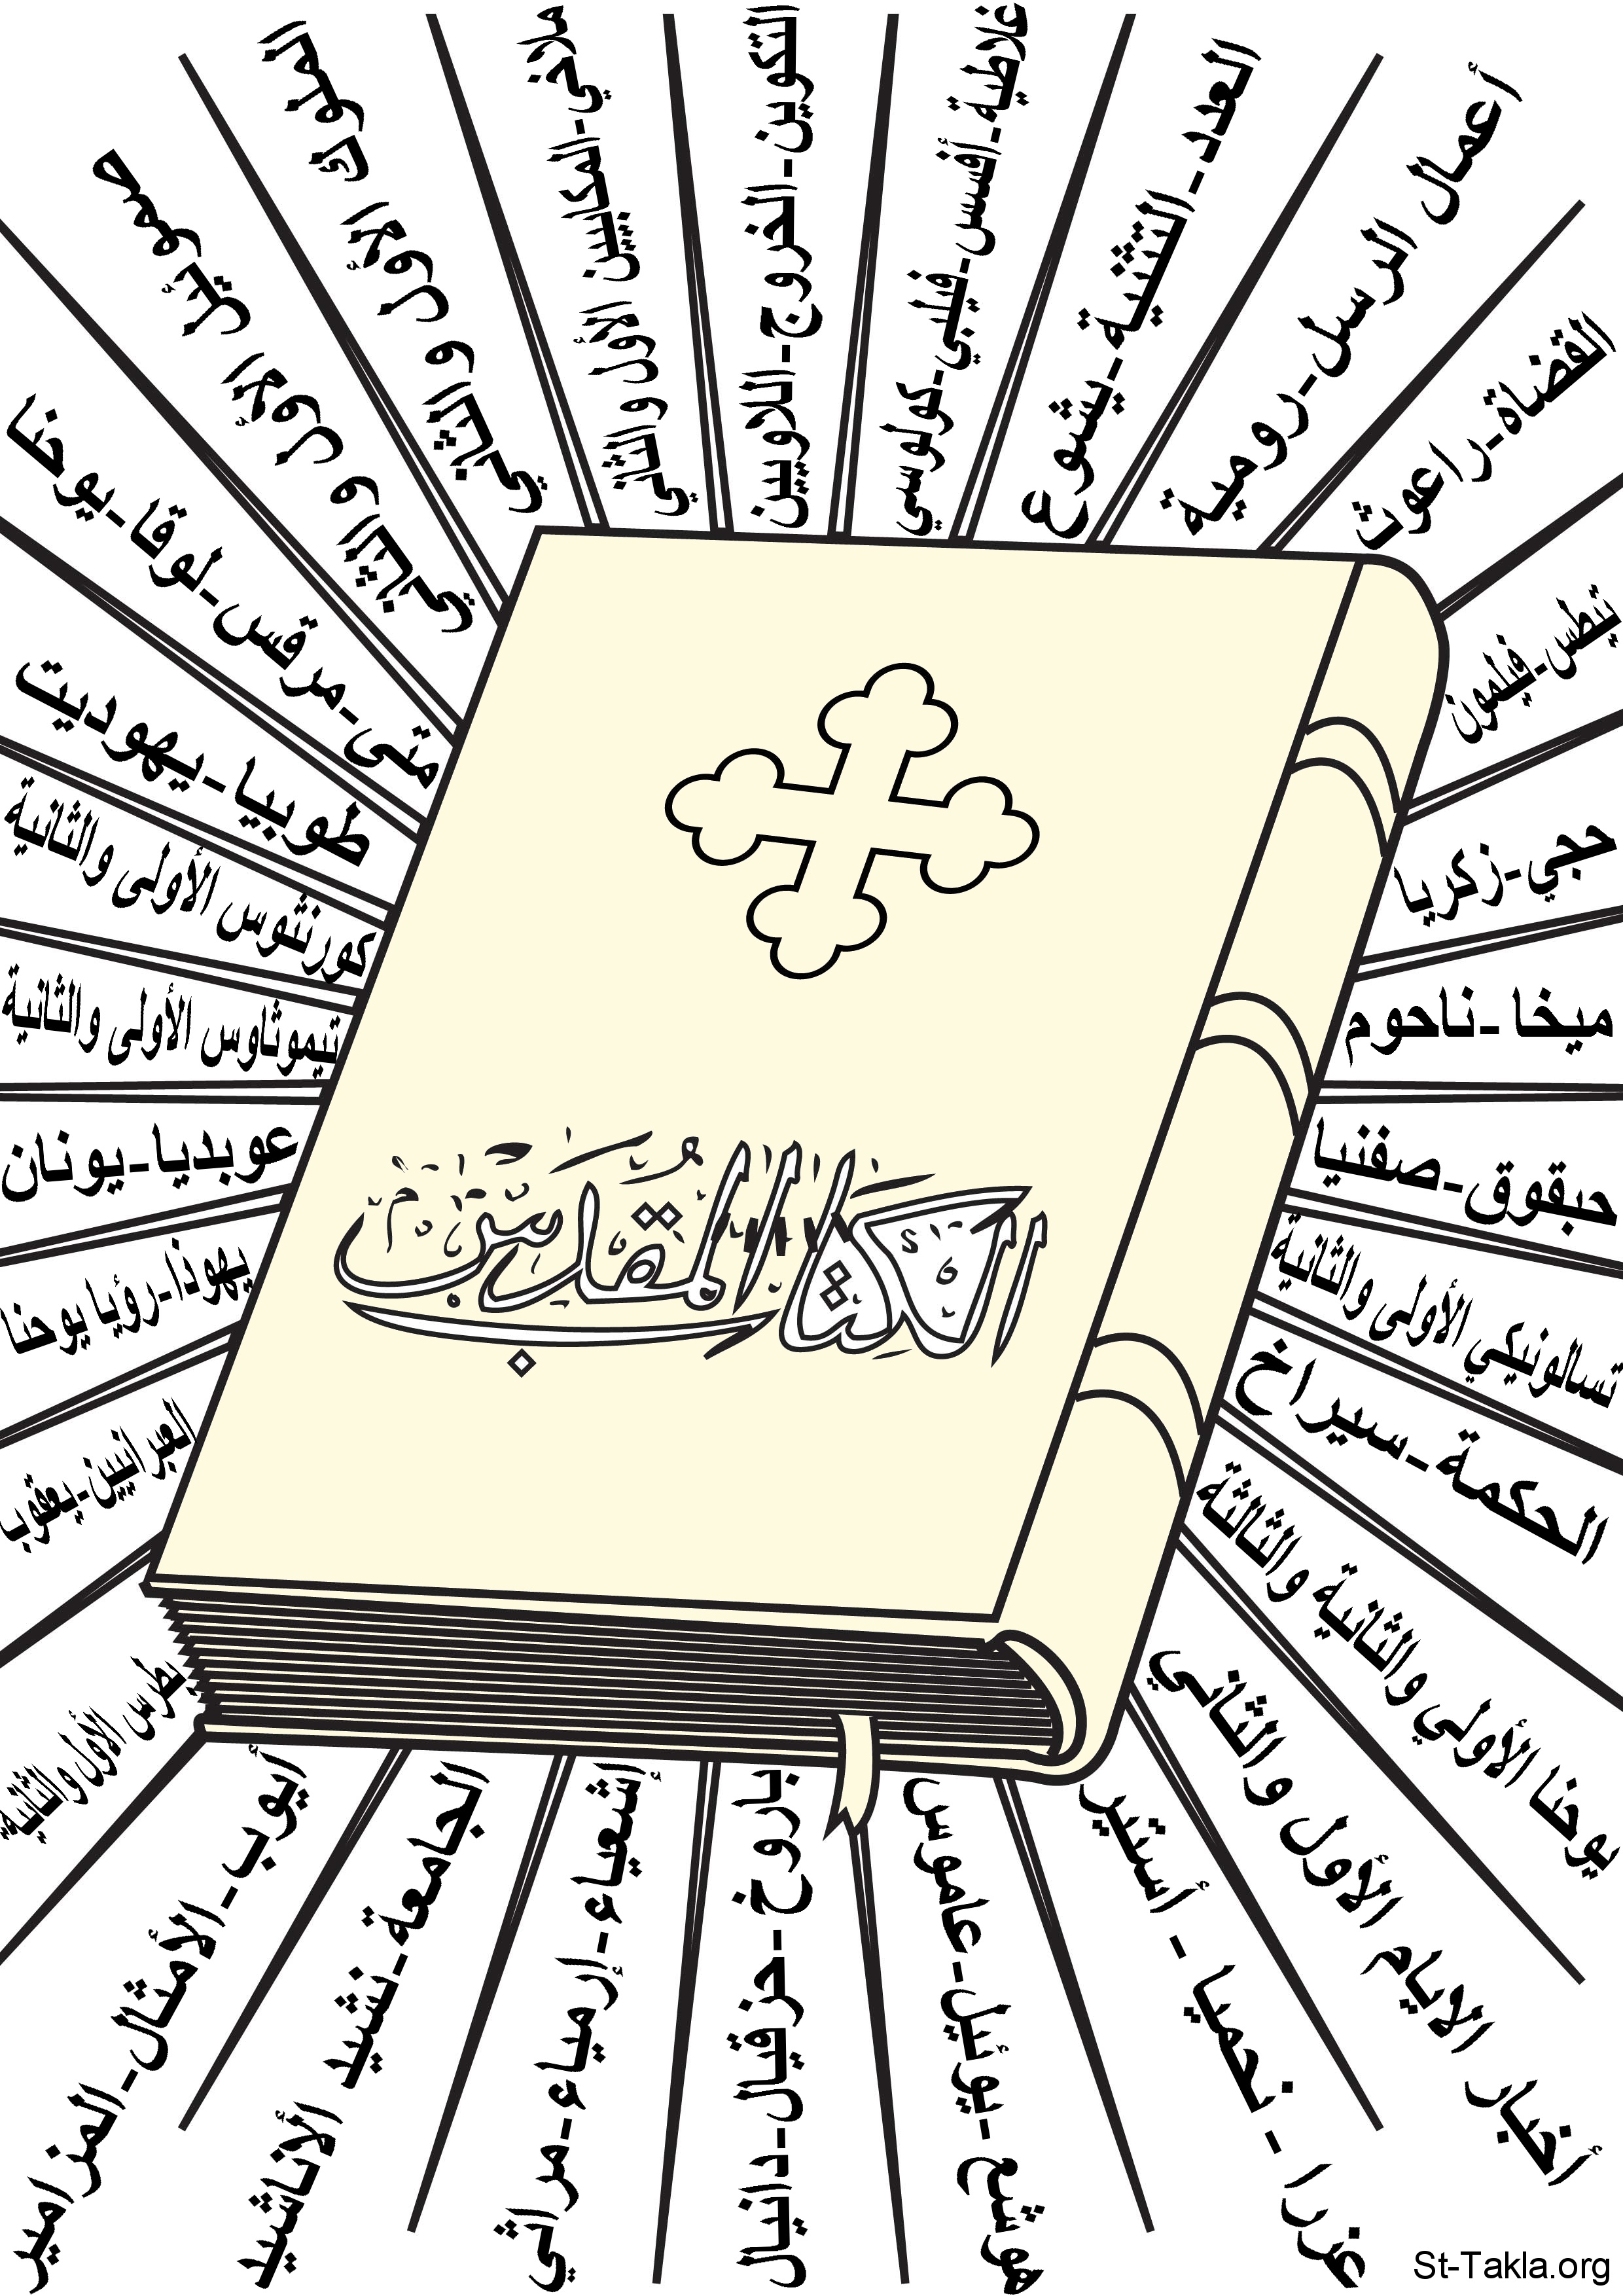 التكوين-الخروج-اللاويين
غلاطية-أفسس-فيلبي-كولوسي
العدد-التثنية-يشوع
أعمال الرسل-رومية
القضاة-راعوث
تيطس-فيلمون
حجي-زكريا
ميخا-ناحوم
حبقوق-صفنيا
تسالونيكي الأولى والثانية
الحكمة-سيراخ
يوحنا الأولي والثانية والثالثة
أخبار الايام الأول والثاني
عزرا - نحميا - أستير
هوشع-يوئيل-عاموس
باروخ-حزقيال-دانيال
أشعياء-إرمياء-مراثي
الجامعة-نشيد الأناشيد
أيوب-الأمثال-المزامير
بطرس الأول والثانية
العبرانيين-يعقوب
يهوذا-رؤيا يوحنا
عوبديا-يونان
تيموثاوس الأولى والثانية
كورنثوس الأولى والثانية
طوبيا-يهوديت
متى-مرقس-لوقا-يوحنا
صموئيل الأول و الثاني
الملوك الأول و الثاني
ملاخي-المكابيين الأول و الثاني
الكتاب المقدس
St-Takla.org